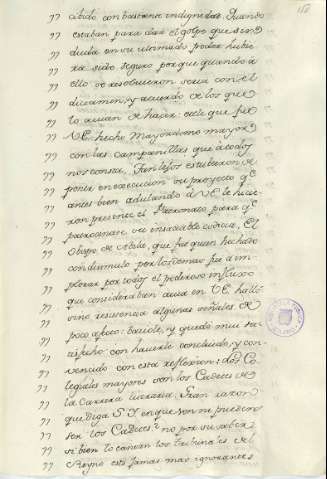 " cibido con bastante indignidad. Quando
" estaban para dar el golpe que sin
" duda en su ultimado poder hubie
" ra sido seguro porque quando à
" ello se resolvieron seria con el
" dictamen, y acuerdo de los que
" lo avian de hacer: sale que fue
" VE hecho Mayordomo mayor
" con las campanillas que à todos
" nos consta. Tan lejos estubieron de
" poner en execucion su proyecto qe
" antes bien adulando à VE le hicie
" ron presente el Patronato para qe
" patrocinase su insaciable codicia. El
" Obispo de Abila, que fue quien hechado
" con disimulo por los demas fue à im
" plorar por todos el poderoso influxo
" que consideraban avia en VE hallò
" sino resistencia algunas señales de
" poco afecto: bastòle, y quedò mui sa
" tisfecho con haverle concluido, y con
" vencido con esta reflexion: dos Co
" legiales mayores son los Cadetes de
" la Carrera literaria. Gran razon
" que diga S.I. en que son ni pueden
" ser los Cadetes? no por su saber
" si bien lo cantan los tribunales del
" Reyno estè famas mas ignorantes